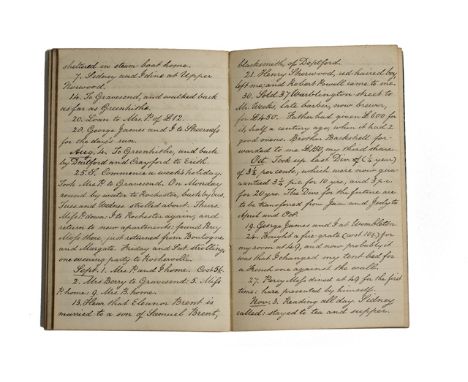 sheltered in steam boat home.
7. Sidney and I dine at Upper
Norwood.
14. To Gravesend, and walked back
as far as Greenhithe.
20. Loan to Mrs P. of £12.
29. George James and I to Sheerness
for the day's run.
to Greenhithe, and back
by Dartford and Crayford to Erith.
25. Commence a week's holiday.
Took Mrs P. to Gravesend. On Monday
round by water to Rochester, back by bus.
Tues. and Wednes. strolled about. Thurs.
Miss P. down: I to Rochester again; and
return to new apartments: found Mrs
Moss there, just returned from Boulogne
and Margate. Friday and Sat. strolling,
one evening party to Rosherville.
Sept. 1. Mrs P. and I home. Cost
2. Mrs Berry to Gravesend: 5. Miss
P. home: 9. Mrs B. home.
13. Hear that Eleanor Brent is
married to a son of Samuel Brent,
blacksmith of Deptford.
21. Henry Sherwood, red haired boy
left me and Robert Powell came to me.
30. Sold 37 Warblington street to
Mr Weeks, late barber, now brewer,
for £450. Father had given £600 for
it, half a century ago, when it had 2
good ovens. Brother for-
warded to me £150, my third share.
Oct. Took up last Div. (½ year)
of 3½ per cents, which were once guar-
anteed 3½ pr c. for 10 yrs, and 3 pr c.
for 20 yrs. The Divs for the future are
to be transferred from Jan. and July to
April and Oct.
19. George James and I at Wimbledon
24. Bought a fire grate for
my room at 49, and now probably it
was that I changed my tent bed for
a French one against the wall.
27. Percy Moss dined at 49 for the first
time: hare presented by himself.
Nov. 3. Reading all day. Sidney
called: stayed to tea and supper.